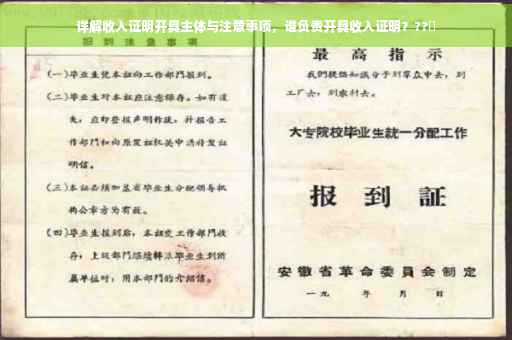 详解收入证明开具主体与注意事项，谁负责开具收入证明？??
报到注意事项
(一)毕业生凭本证向工作部门报到。
(二)毕业生对本证应注意保存。如有遗
失，应即登报声明作废，并报告工
作部门和向原发证机关申请补发证
明信。
(三)本证必须加盖省毕业生分配领导机
构公章方为有效。
(四)毕业生报到后，本证交工作部门收
存；上级部门继续
毕业生到所
属单位时，用本部门的介绍信。
最高指示
我们提倡知识分子到群众中去，到
工厂去，到农村去。
大专院校毕业生统一分配工作
报到証
安徽省革命委員会制定
一九 年 月 日